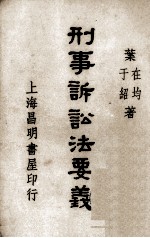 葉在均
于紹著
刑事訴訟法要義
上海昌明書屋印行